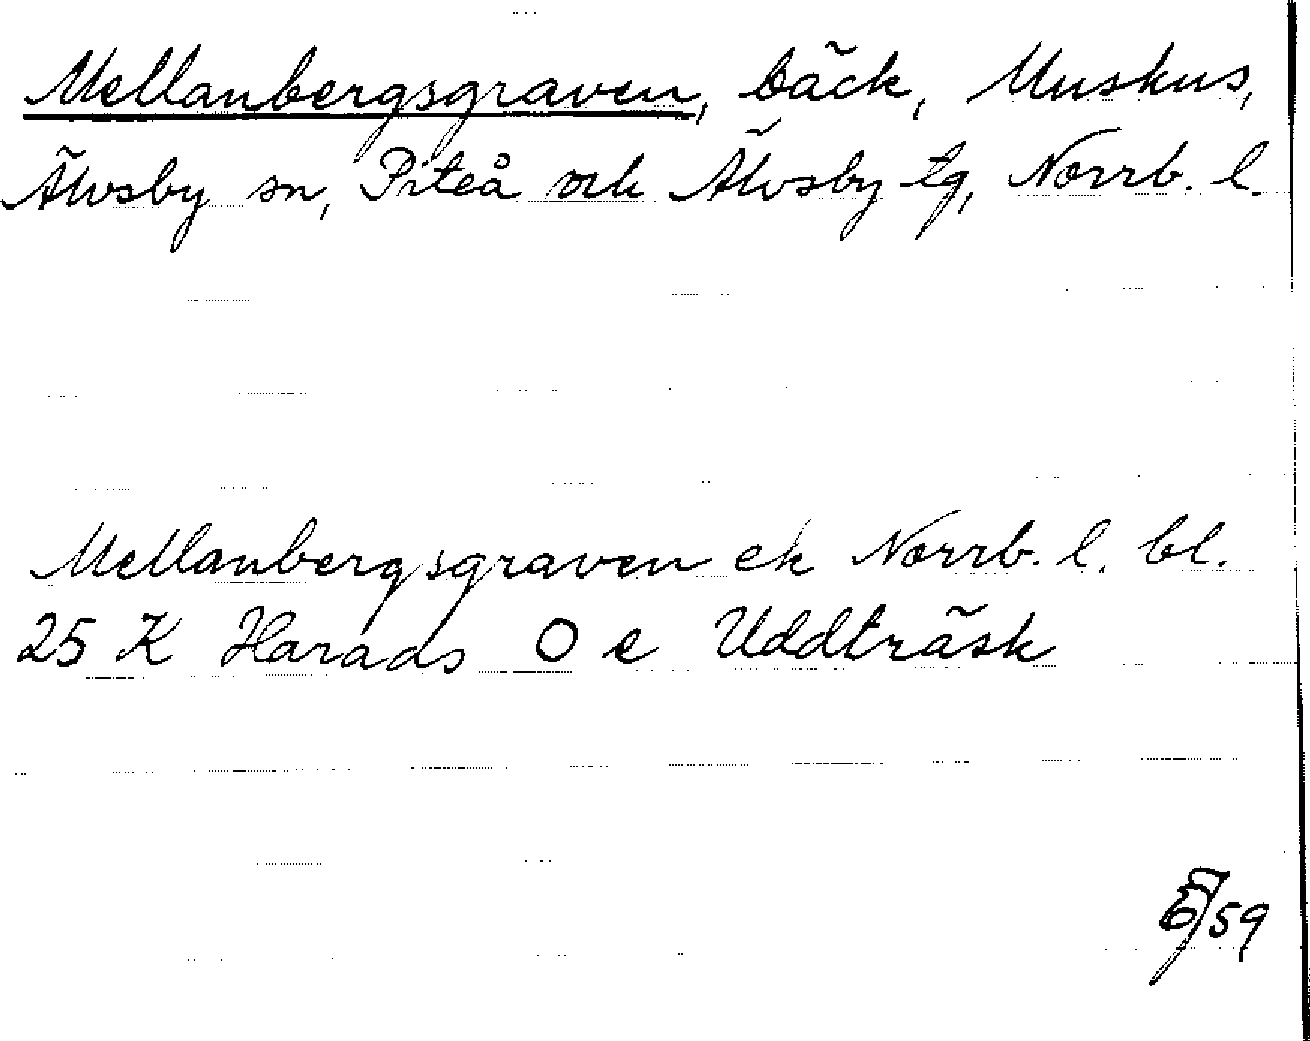 Mellanbergsgraven, bäck, Muskus,
Älvsby sn, Piteå och Älvsby tg, Norrb. l.
Mellanbergsgraven ek Norrb. l. bl.
25 K Harads O e Uddträsk
/59